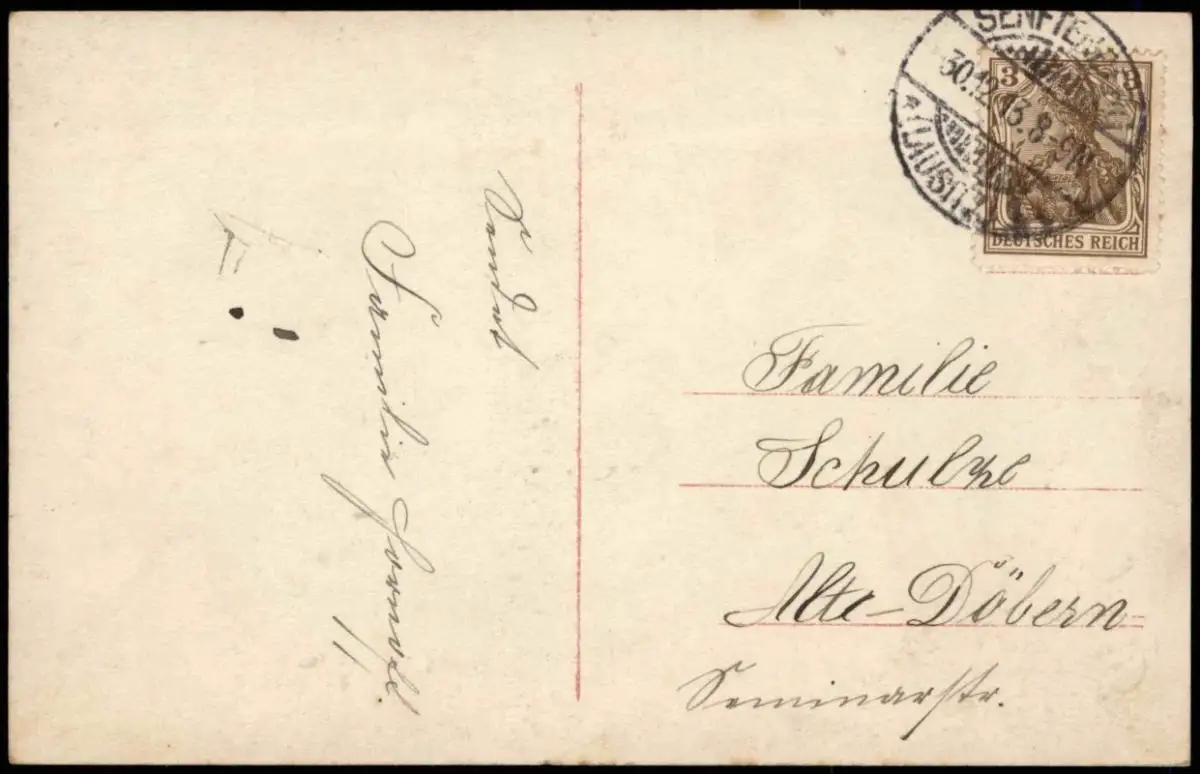 SENFTE
30.12.13.8-9N
* (LAUSITZ)
3 3
DEUTSCHES REICH
Familie
Schulze
Alte-Döbern
Seminarstr.
Sendet
Familie